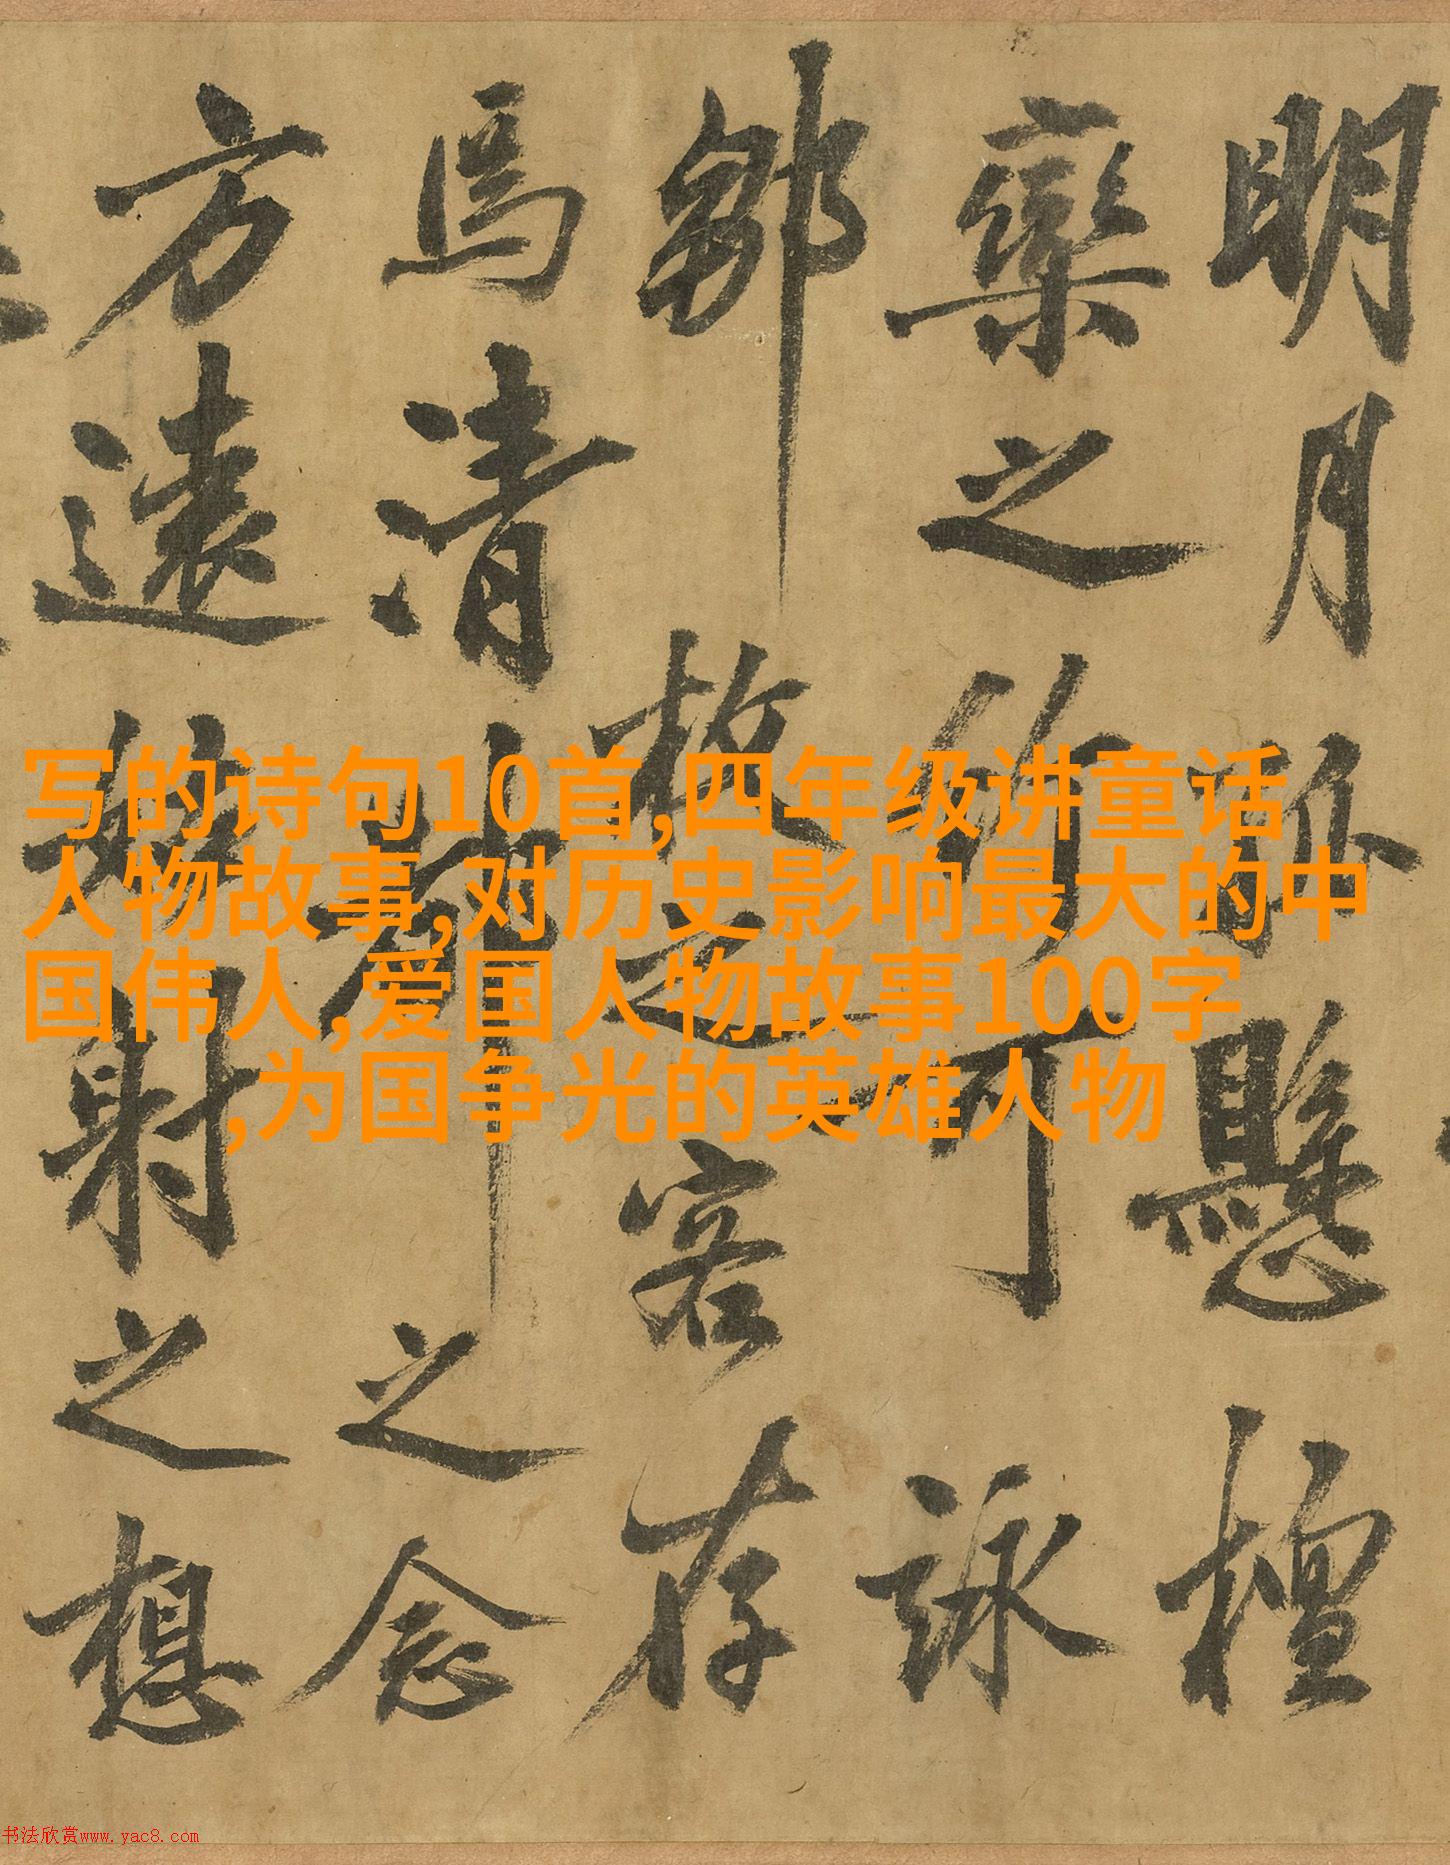 明月孤懸檀
欒之竹可詠
鄒枚之客存
焉清之念
方遠姑射之想
写的诗句10首,四年级讲童话
人物故事,对历史影响最大的中
国伟人,爱国人物故事100字
,为国争光的英雄人物
书法欣赏www.yac8.com